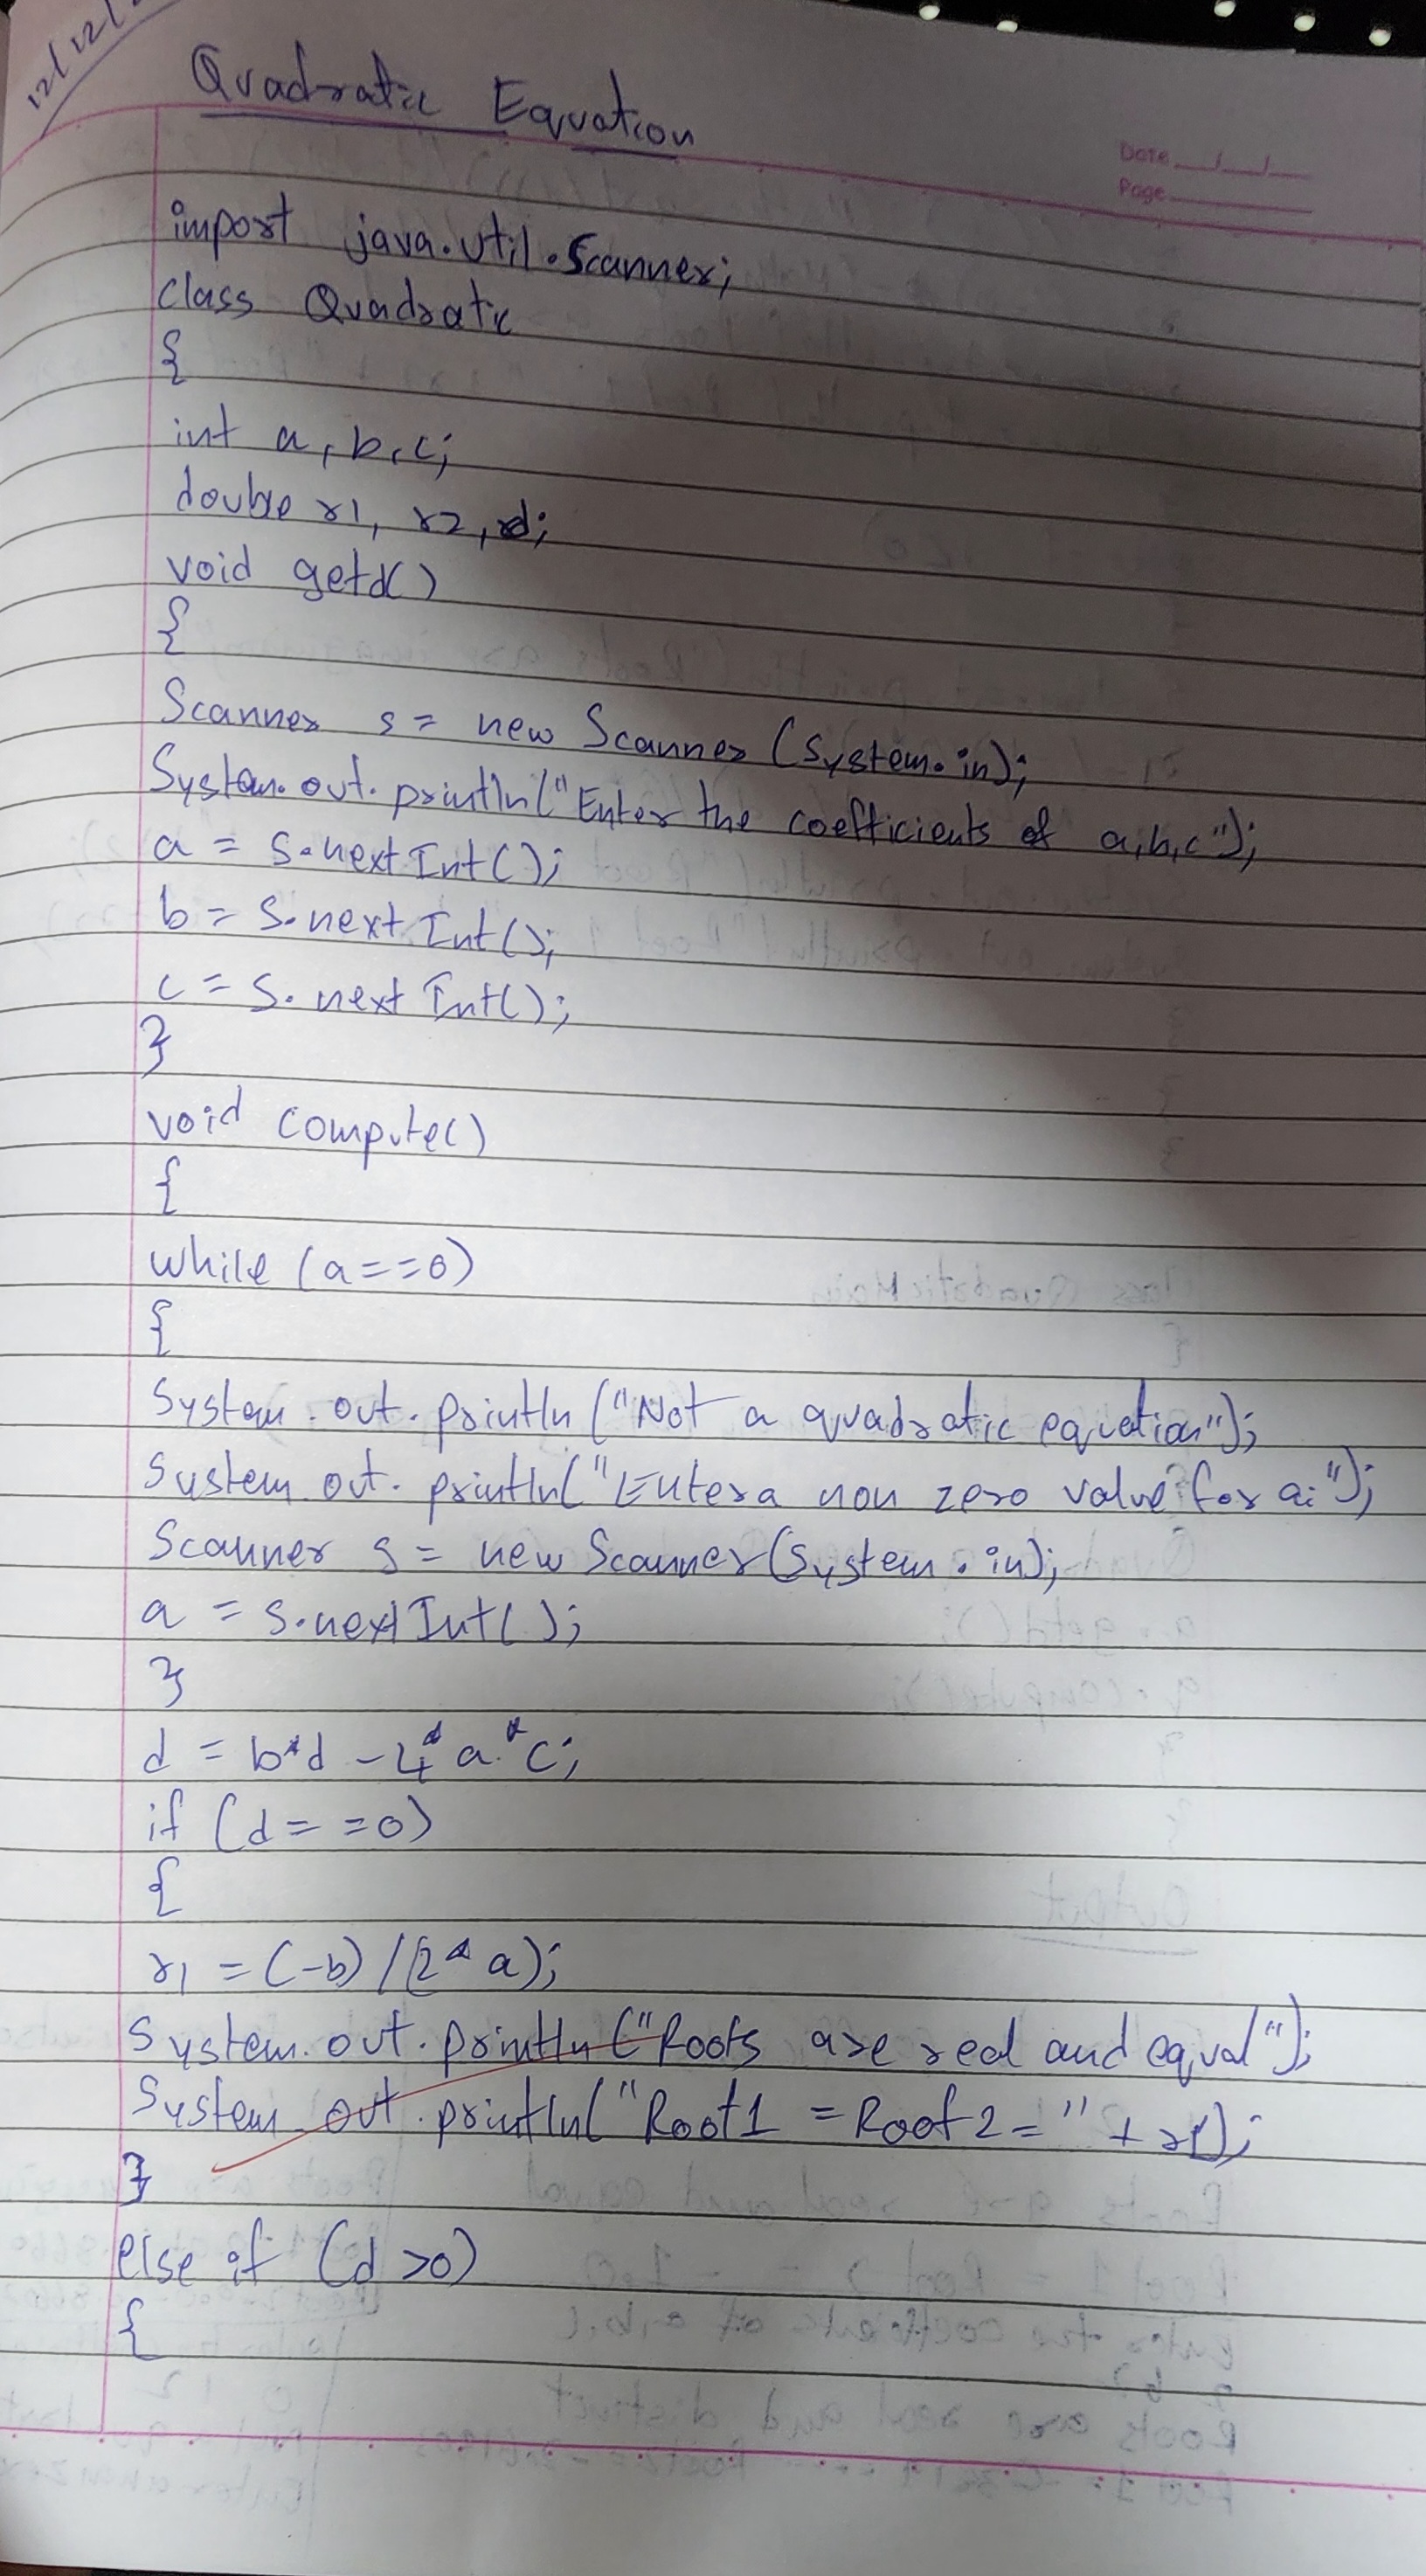 12/12/
Quadratic Equation
Date
Page
import java.util.Scanner;
class Quadratic
{
int a, b, c;
double r1, r2, d;
void getd()
{
Scanner s = new Scanner (System.in);
System.out.println("Enter the coefficients of a,b,c");
a = s.nextInt();
b = s.nextInt();
c = s.nextInt();
}
void compute()
{
while (a==0)
{
System.out.println ("Not a quadratic equation");
System.out.println("Enter a non zero value for a:");
Scanner s = new Scanner(System.in);
a = s.nextInt();
}
d = b*d - 4*a*c;
if (d==0)
{
r1 = (-b)/(2*a);
System.out.println ("Roots are real and equal");
System.out.println("Root1 = Root2 = " + r1);
}
else if (d>0)
{